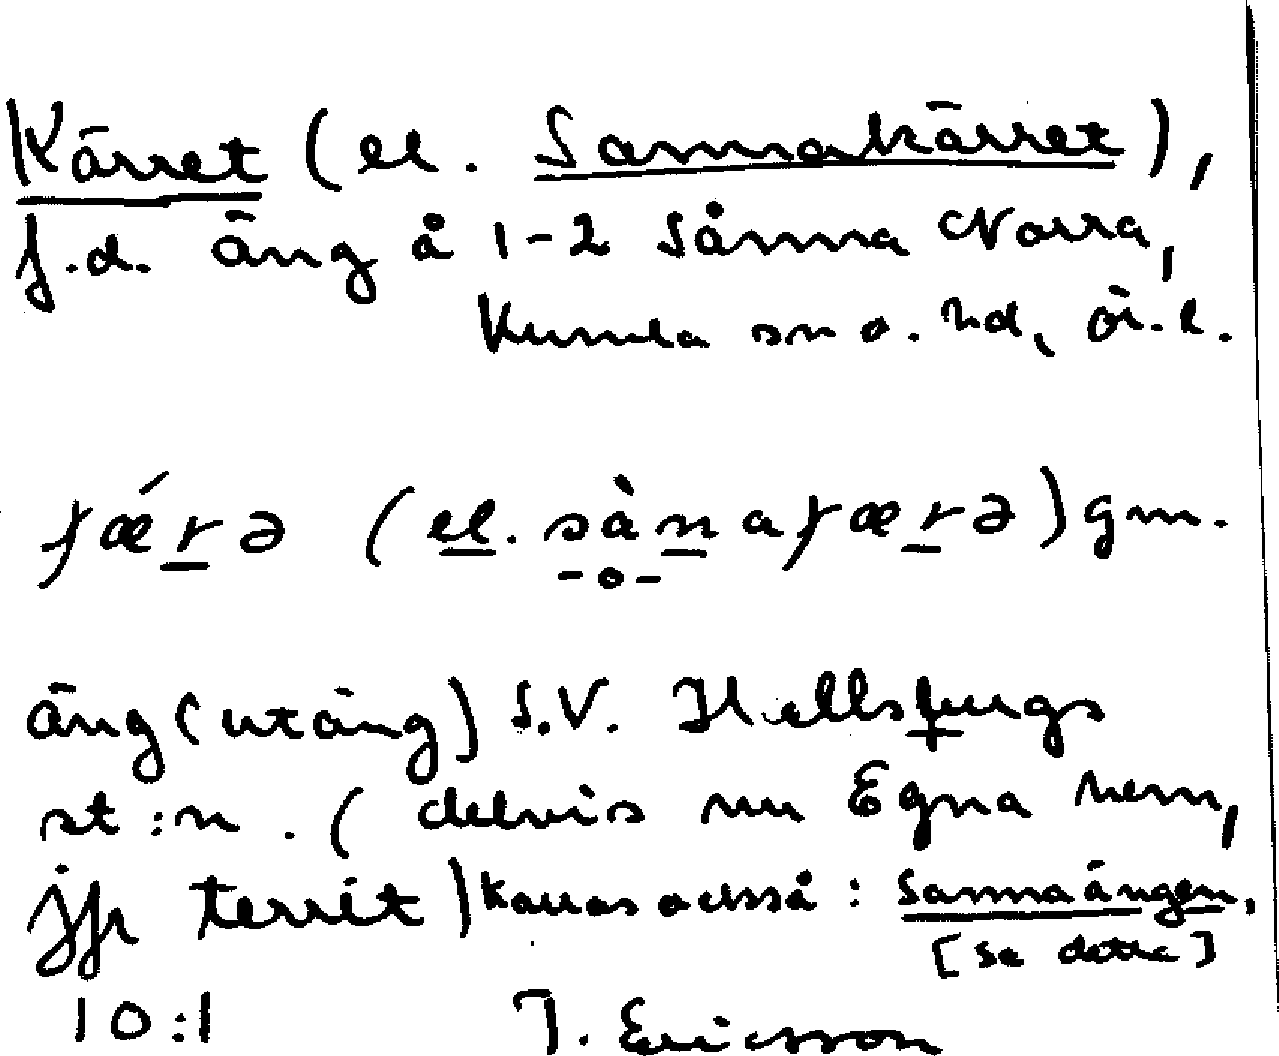 Kärret (el. Sannakärret),
f.d. äng å 1-2 Sånna Norra,
Kumla sn o. hd, ör.l.
ɟǽrə (el. sànaɟærə) gm.
-o-
äng (utäng) S.V. Hallsbergs
st:n. (delvis nu Egna hem,
jfr territ) kallas också: Sannaängen,
[se detta]
10:1 J. Ericsson